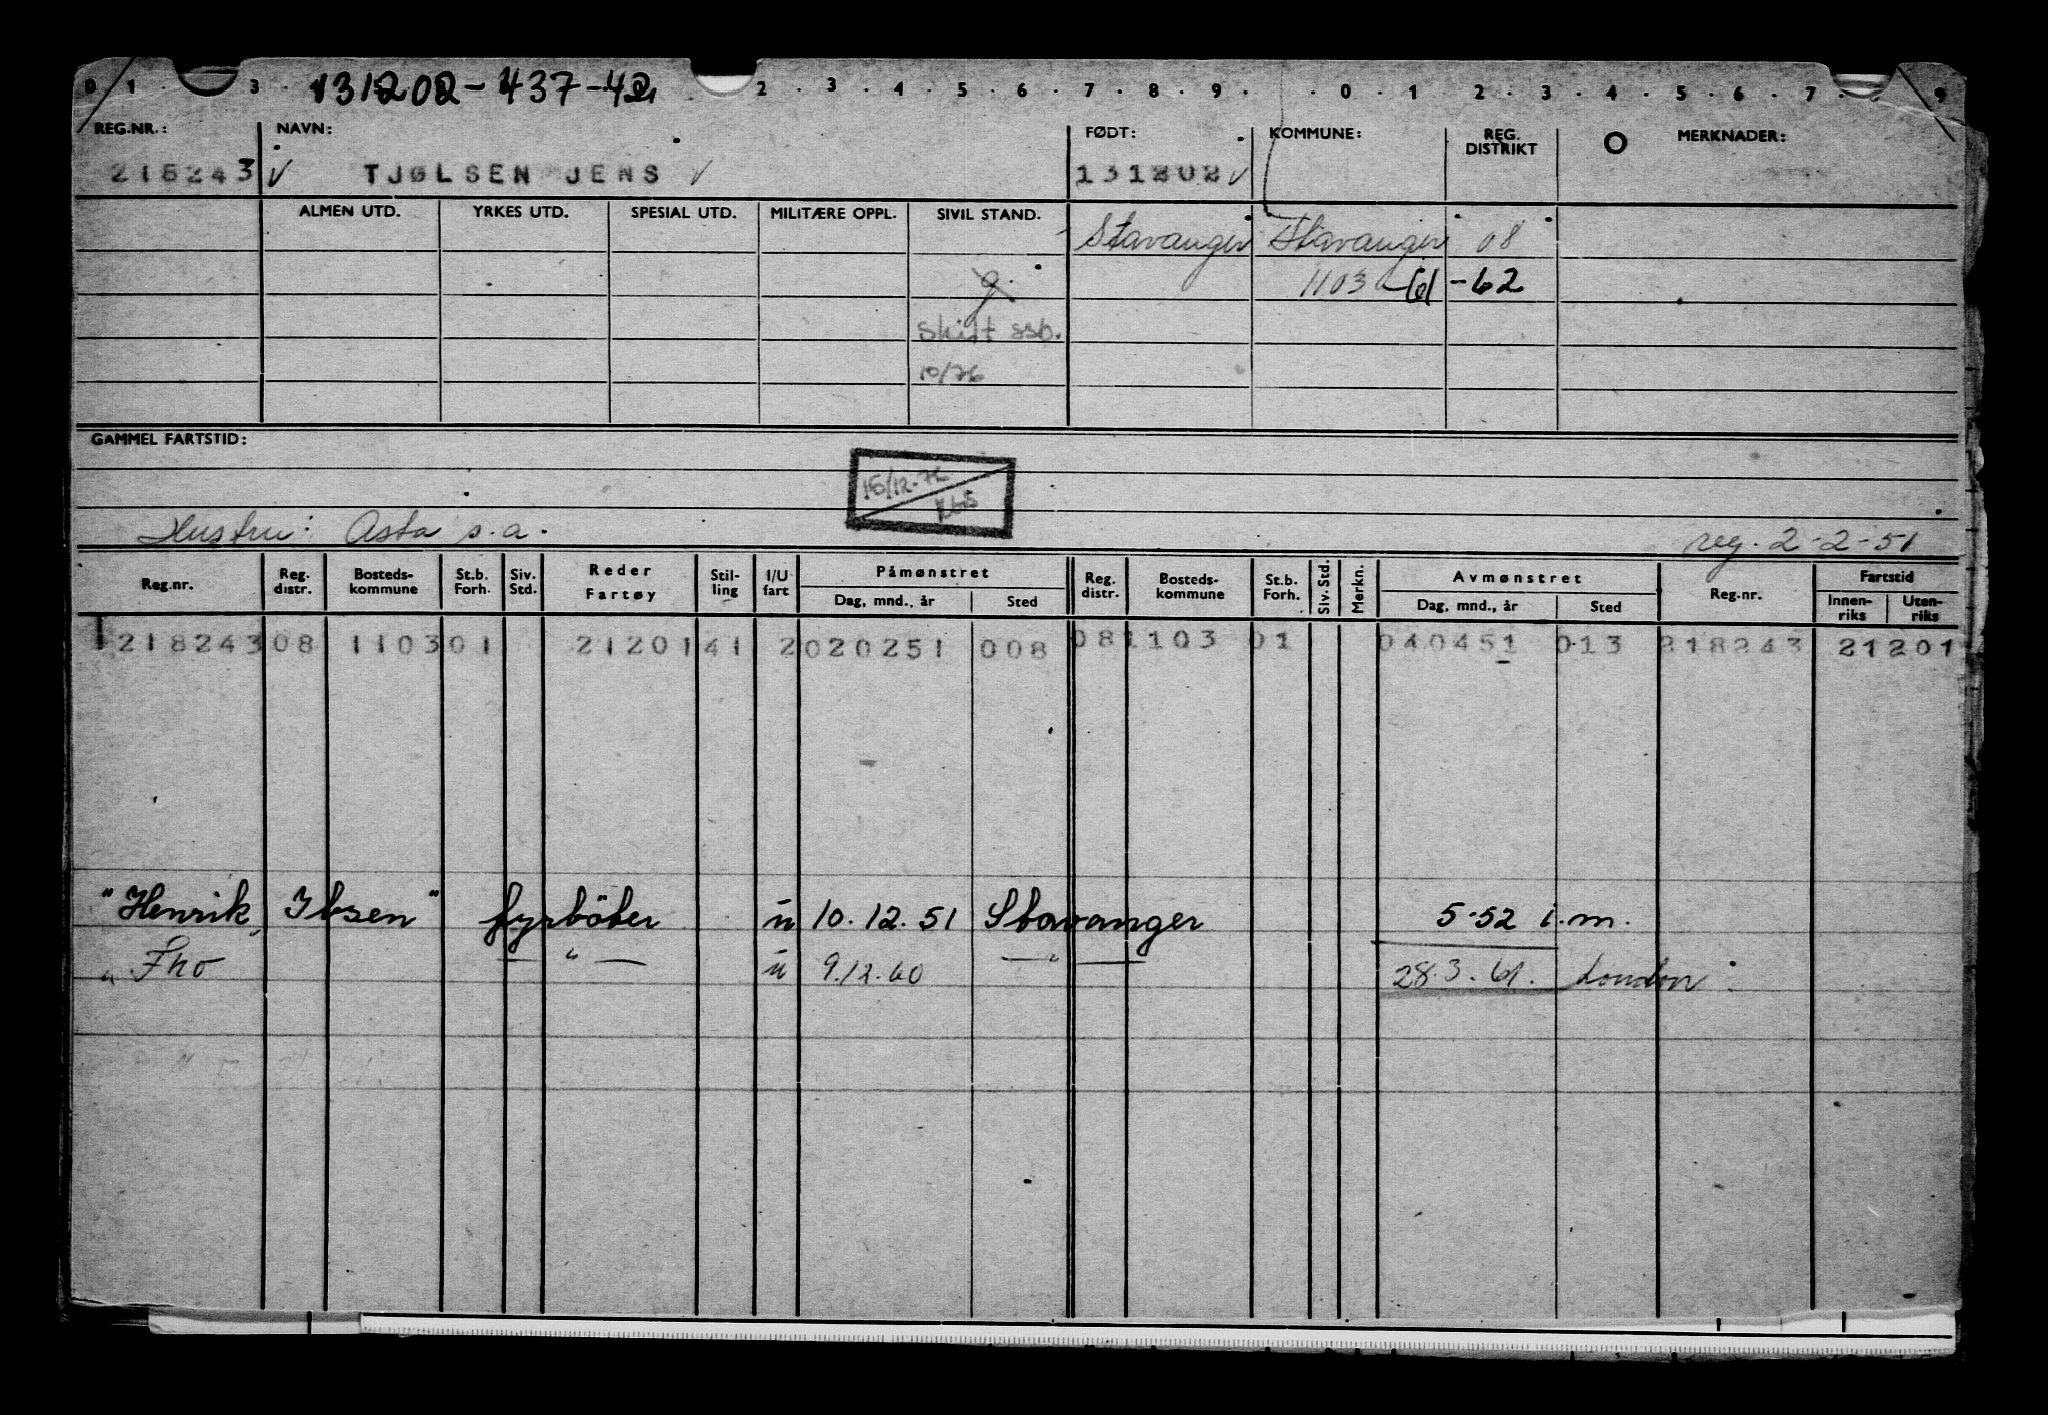 131202-437-42
0 1 3 2 3 4 5 6 7 8 9 0 1 2 3 4 5 6 7 9
REG.NR.: NAVN: FØDT: KOMMUNE: REG. DISTRIKT MERKNADER:
218243 TJØLSEN JENS 131202
ALMEN UTD. YRKES UTD. SPESIAL UTD. MILITÆRE OPPL. SIVIL STAND.
Stavanger Stavanger 08
g. 1103 61-62
Skilt ssb.
10/76
GAMMEL FARTSTID:
Hustru: Asta s.a. reg. 2-2-51
Reg.nr. Reg. distr. Bosteds-kommune St.b. Forh. Siv. Std. Reder Fartøy Stil-ling I/U fart Påmønstret Reg. distr. Bosteds-kommune St.b. Forh. Siv. Std. Merkn. Avmønstret Reg.nr. Fartstid
Dag, mnd., år Sted Dag, mnd., år Sted Innen-riks Uten-riks
218243 08 1103 01 21201 41 2 020251 008 08 1103 01 040451 013 218243 21201
"Henrik Ibsen" fyrbøter u 10.12.51 Stavanger 5-52 i.m.
" Fro — " — u 9.12.60 — " — 28.3.61. London